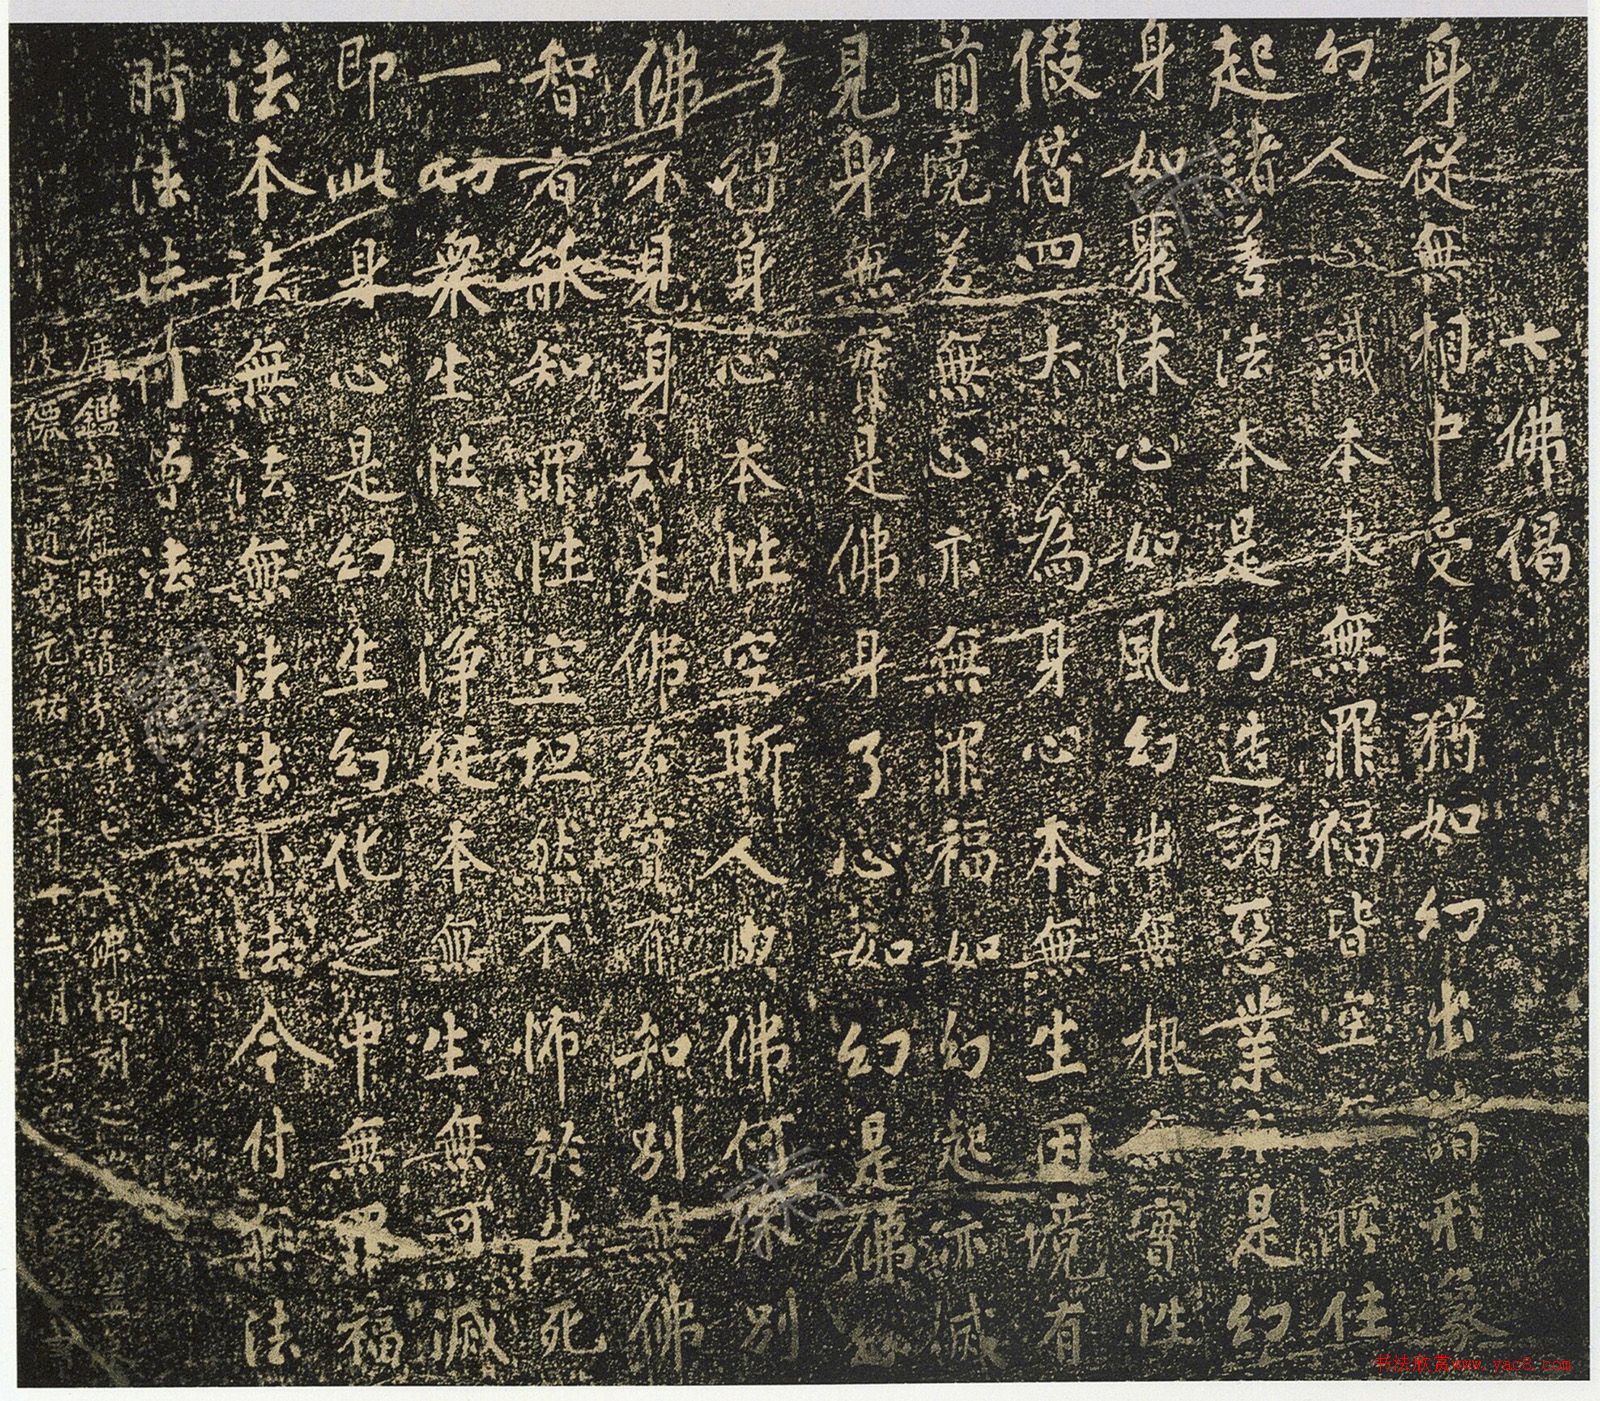 七佛偈
身從無相中受生猶如幻出諸形象
幻人心識本來無罪福皆空無所住
起諸善法本是幻造諸惡業亦是幻
身如聚沫心如風幻出無根無實性
假借四大以為身心本無生因境有
前境若無心亦無罪福如幻起亦滅
見身無實是佛身了心如幻是佛
了得身心本性空斯人與佛何殊別
佛不見身知是佛若實有知別無佛
智者能知罪性空坦然不怖於生死
一切衆生性清淨從本無生無可滅
即此身心是幻生幻化之中無罪福
法本法無法無法法亦法今付無法
時法法何曾法
鑑 祖師 七佛偈刻之 石
元祐 年十二月
书法欣赏www.yac8.com